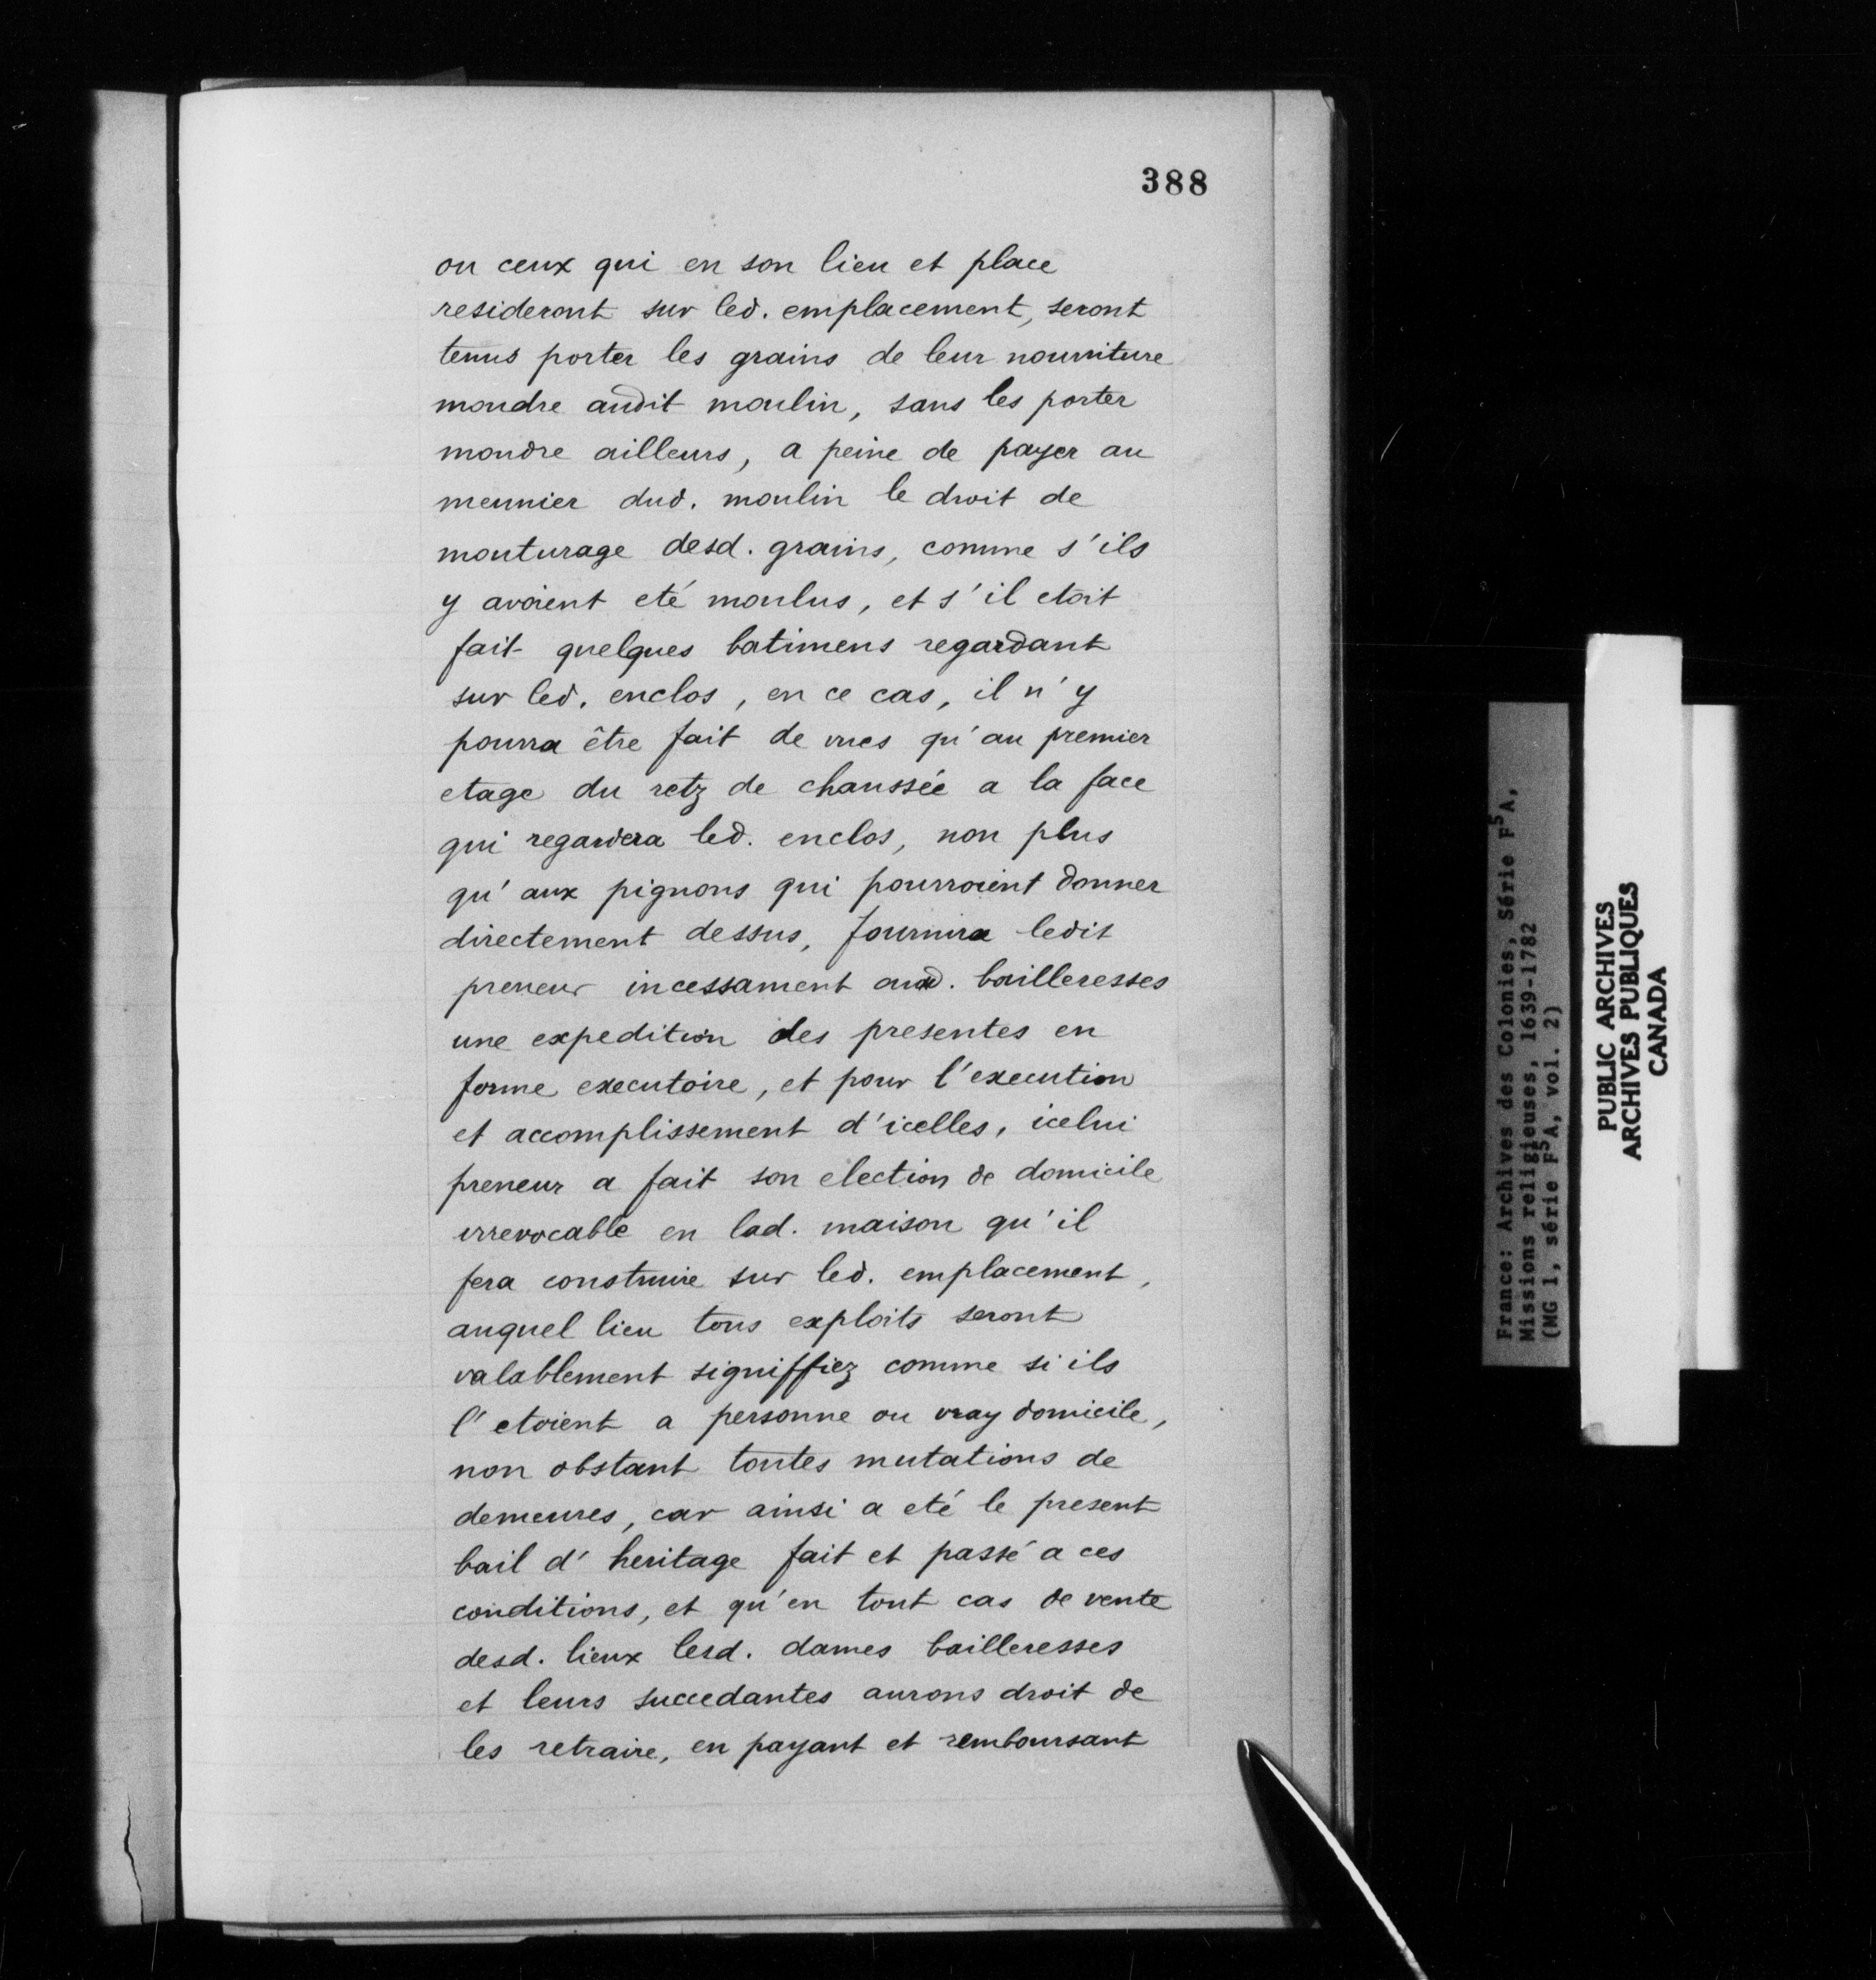 388
ou ceux qui en son lieu et place
resideront sur led. emplacement, seront
tenus porter les grains de leur nourriture
moudre audit moulin, sans les porter
moudre ailleurs, a peine de payer au
meunier dud. moulin le droit de
mouturage desd. grains, comme s'ils
y avoient eté moulus, et s'il etoit
fait quelques batimens regardant
sur led. enclos, en ce cas, il n'y
pourra être fait de vues qu'au premier
etage du retz de chaussée a la face
qui regardera led. enclos, non plus
qu'aux pignons qui pourroient donner
directement dessus, fournira ledit
preneur incessament auxd. bailleresses
une expedition des presentes en
forme executoire, et pour l'execution
et accomplissement d'icelles, icelui
preneur a fait son election de domicile
irrevocable en lad. maison qu'il
fera construire sur led. emplacement,
auquel lieu tous exploits seront
valablement signiffiez comme si ils
l'etoient a personne ou vray domicile,
non obstant toutes mutations de
demeures, car ainsi a eté le present
bail d'heritage fait et passé a ces
conditions, et qu'en tout cas de vente
desd. lieux lesd. dames bailleresses
et leurs succedantes aurons droit de
les retraire, en payant et remboursant
France: Archives des Colonies, Série F5A,
Missions religieuses, 1639-1782
(MG 1, série F5A, vol. 2)
PUBLIC ARCHIVES
ARCHIVES PUBLIQUES
CANADA